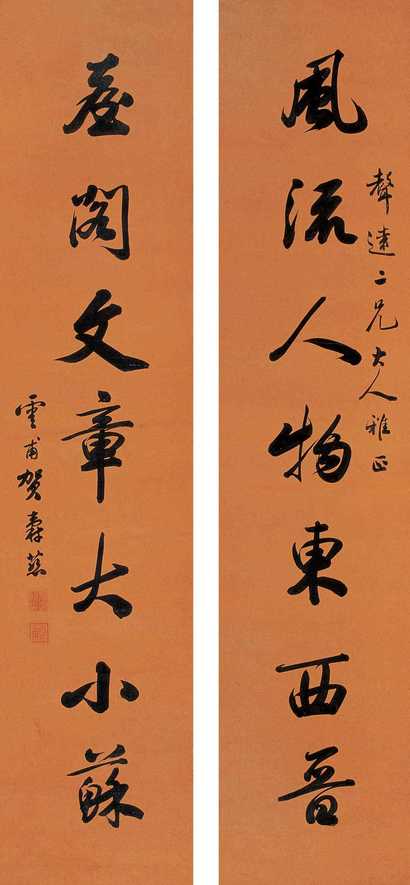 聲達二兄大人雅正
風流人物東西晉
臺閣文章大小蘇
雲甫賀壽慈